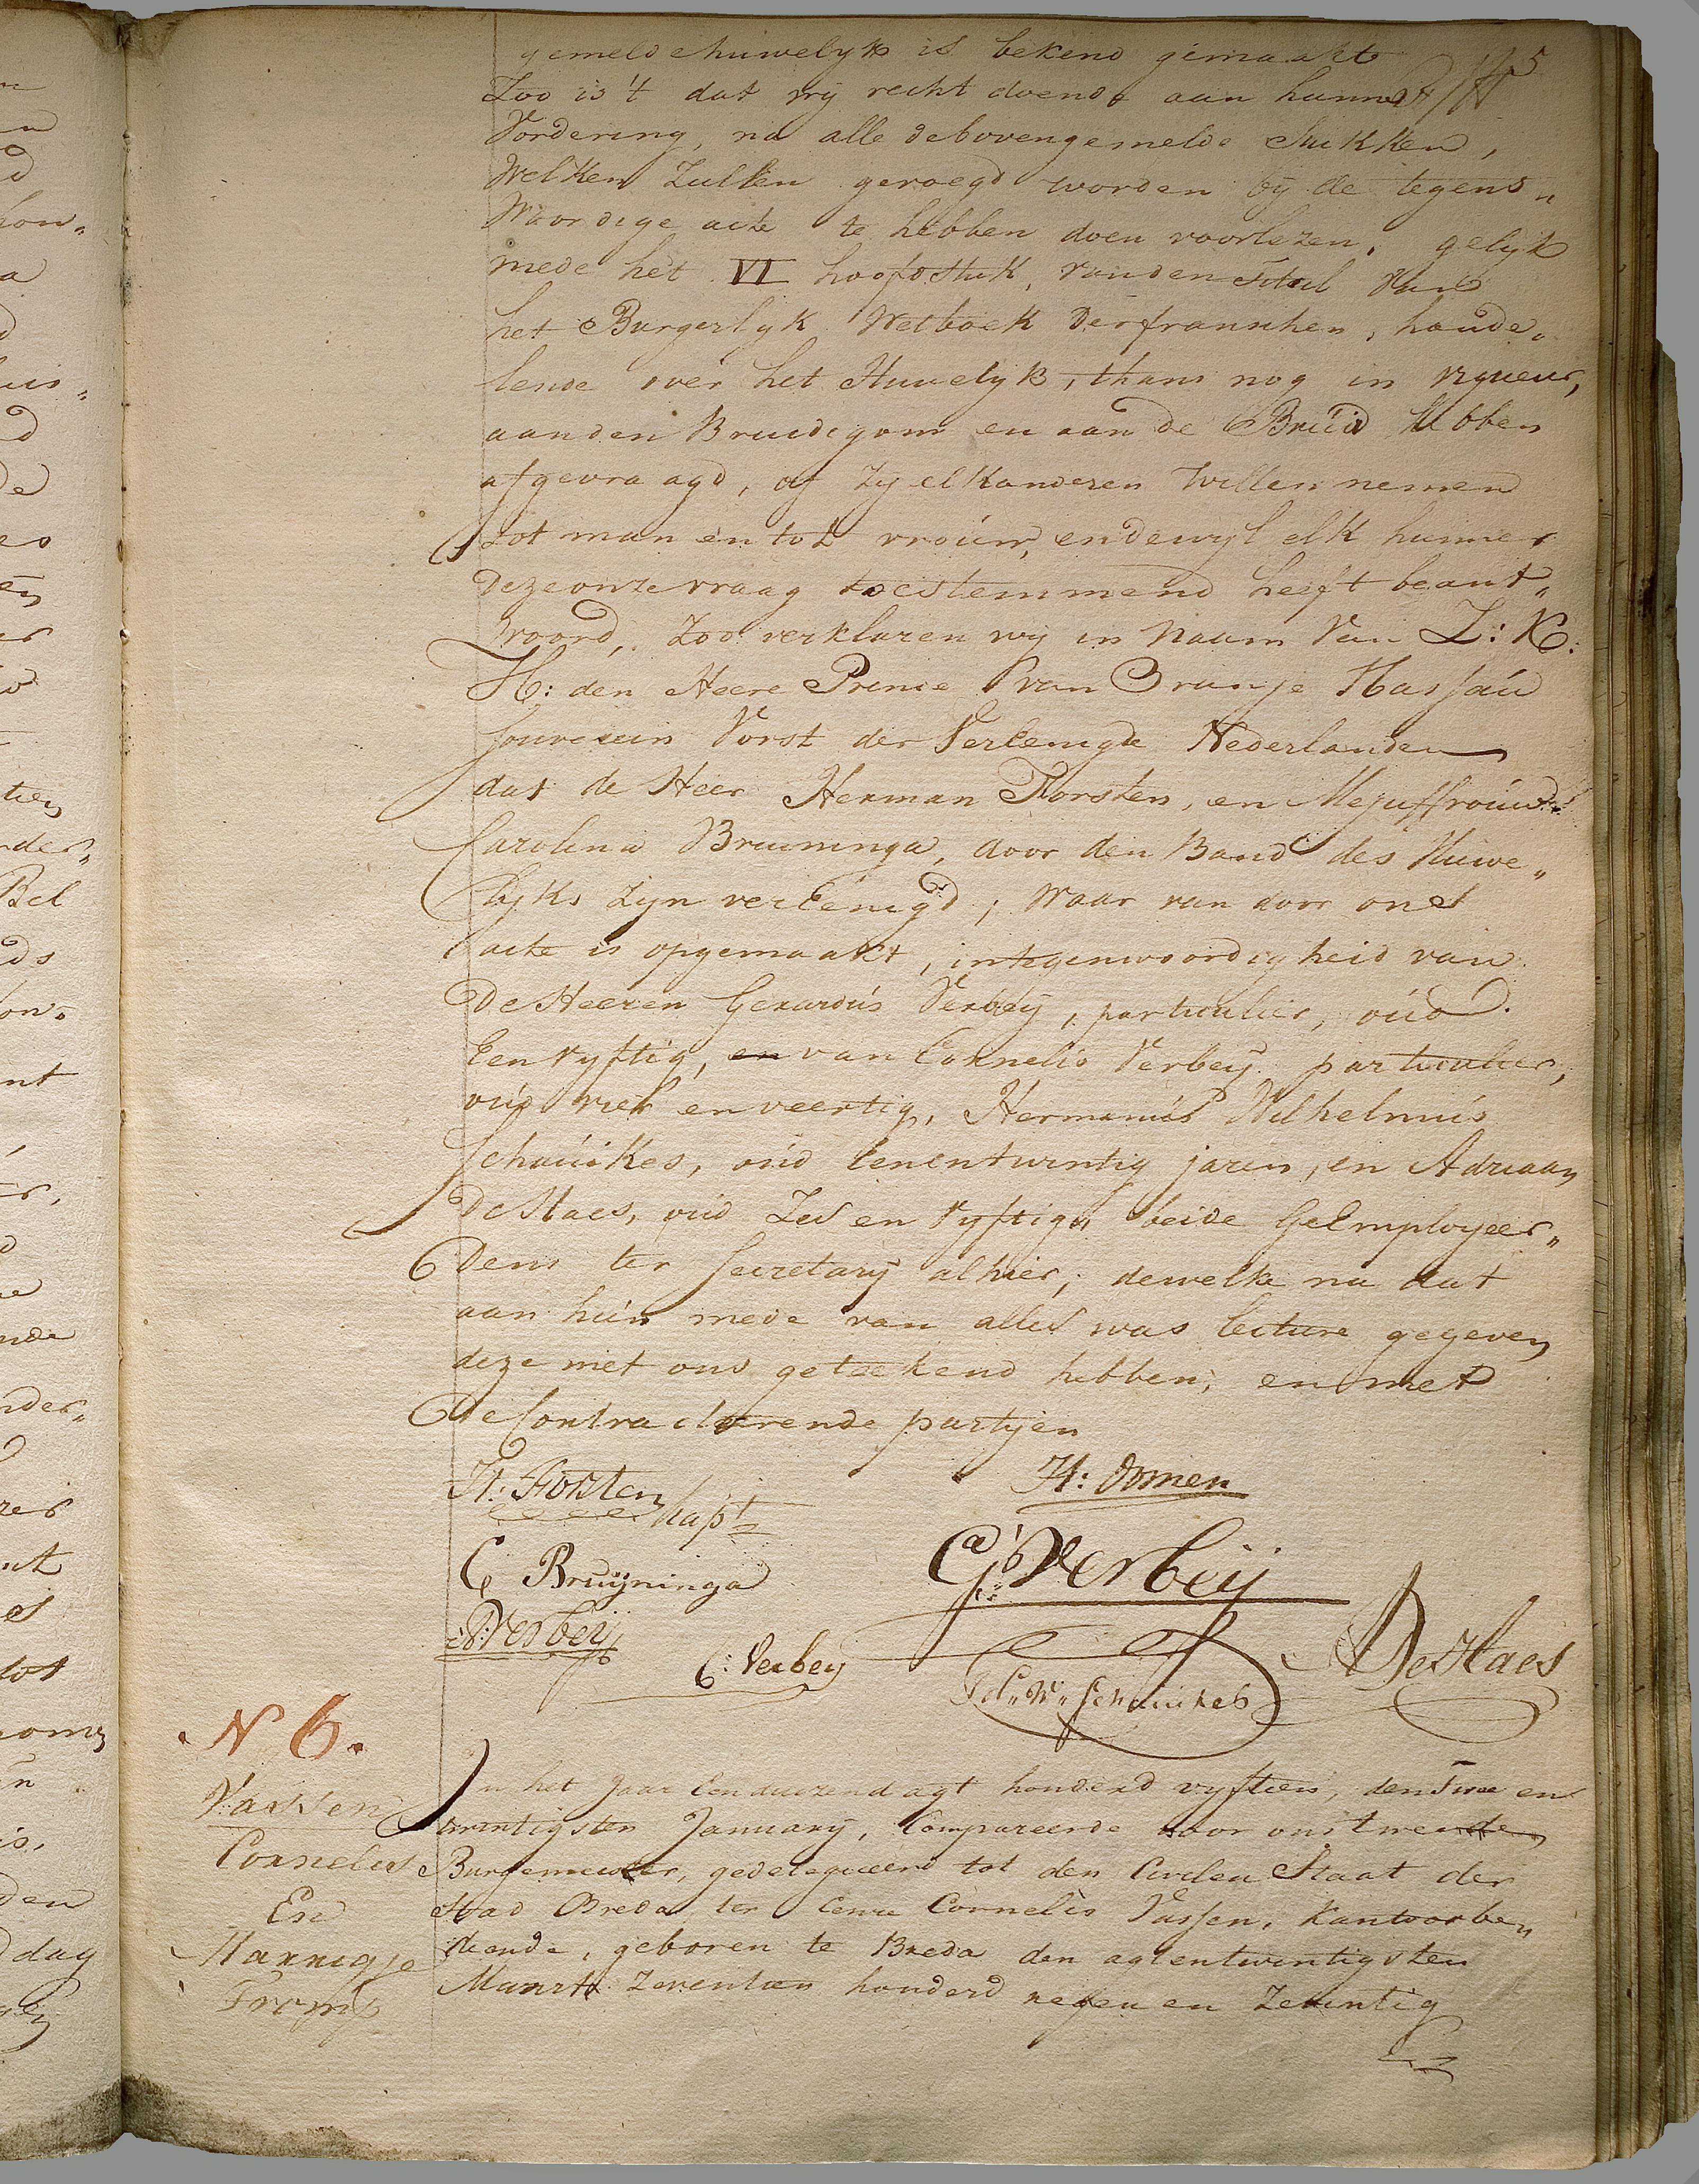 gemelde huwelyk is bekend gemaakt
5
Zoo is 't dat wy recht doende aan hunne
Vordering, na alle de bovengemelde stukken,
Welken Zullen gevoegd worden bij de tegens„
Woordige acte te hebben doen voorlezen, gelyk
mede het VI hoofdstuk, van den Titul van
het Burgerlyk Wetboek der franschen, hande„
lende over het Huwelyk, thans nog in vigueur,
aan den Bruidigom en aan de Bruid hebben
afgevraagd, of Zy elkanderen willen nemen
tot man en tot vrouw, en dewyl elk hunner
deze onze vraag toestemmend heeft beant„
woord, Zoo verklaren wy in Naam Van Z: K:
H: den Heere Prince van Oranje Nassau
souverein Vorst der Vereenigde Nederlanden
dat de Heer Herman Forsten, en Mejuffrouw
Carolina Bruininga, door den Band des Huwe„
lyks Zyn vereenigd; Waar van door ons
acte is opgemaakt, in tegenwoordigheid van
De Heeren Gerardus Verbeÿ, particulier, oud
Een vyftig, en van Cornelis Verbeÿ particulier,
oud vier en veertig, Hermanus Wilhelmus
Schauikes, oud Eenentwintig jaren, en Adriaan
De Haes, oud Zes en vyftig beide GeEmployeer„
dens ter Secretarÿ alhier; dewelke na dat
aan hun mede van alles was lecture gegeven
deze met ons geteekend hebben, en met
de Contracterende partyen
H: Forsten
kapt
H: Oomen
C Bruÿninga
G Verbeÿ
Verbeÿ
C: Verbeÿ
H„ W„ Schauikes
A De Haes
N 6.
Vassen
Cornelis
En
Mannigje
From
In het Jaar Eenduizend agt honderd vyftien, den Twee en
twintigsten Januarÿ, Compareerde voor ons tweede
Burgemeester, gedelegueerd tot den Civilen Staat der
Stad Breda ter Eenre Cornelis Vassen, Kantoorbe„
diende, geboren te Breda den agtentwintigsten
Maart Zeventien honderd negen en Zeventig